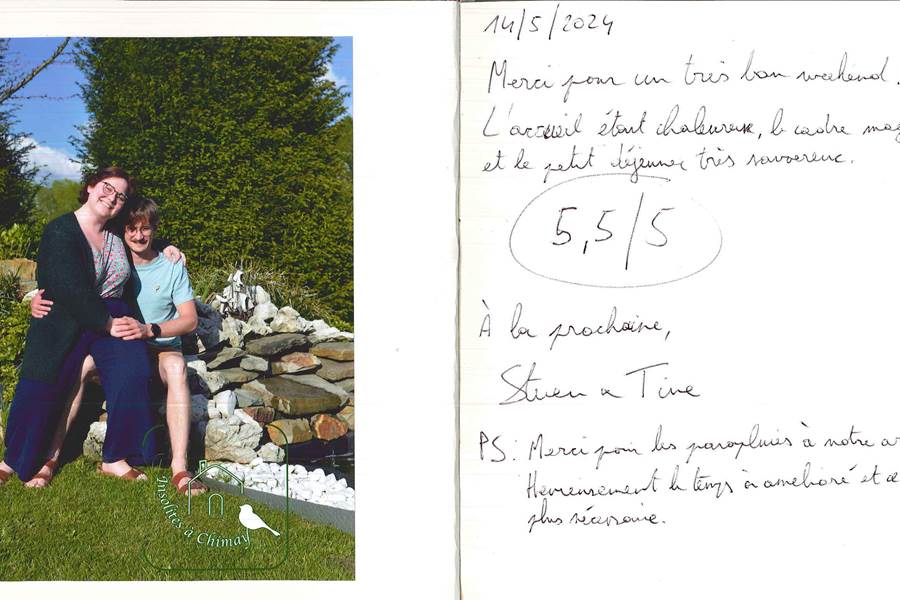 14/5/2024
Merci pour un très bon weekend.
L'accueil était chaleureux, le cadre mag
et le petit déjeuner très savoureux.
5,5/5
À la prochaine,
Steven & Tine
PS: Merci pour les parapluies à notre ar
Heureusement le temps a amélioré et
plus nécessaire.
Insolites à Chimay